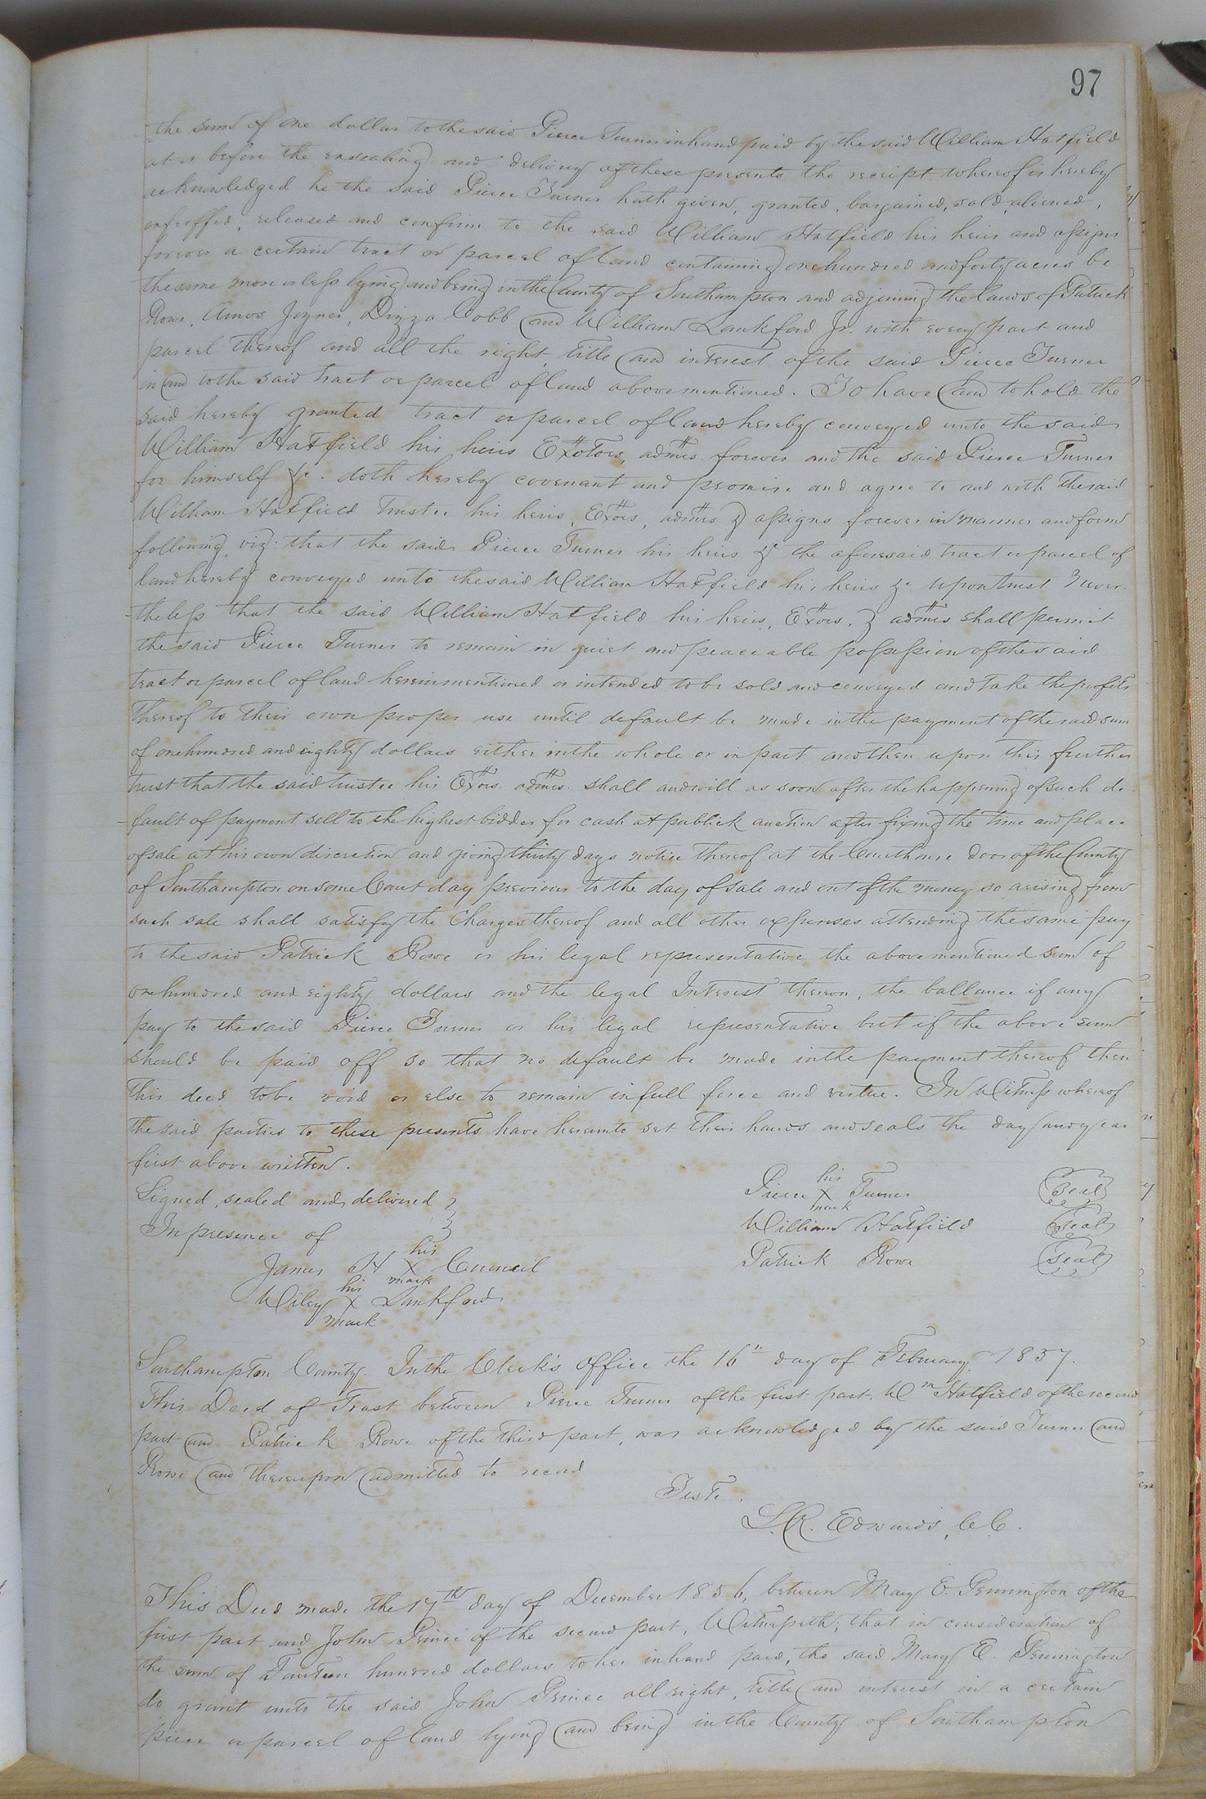 97
the sum of one dollar to the said Pierce Turner in hand paid by the said William Hatfield
at or before the ensealing and delivery of these presents the receipt whereof is hereby
acknowledged he the said Pierce Turner hath given, granted, bargained, sold, aliened,
enfeoffed, released and confirm to the said William Hatfield his heirs and assigns
forever a certain tract or parcel of land containing one hundred and forty acres be
the same more or less lying and being in the County of Southampton and adjoining the lands of Patrick
Rowe, Amos Joyner, Dizza Cobb and William Lankford Jr. with every part and
parcel thereof and all the right title and interest of the said Pierce Turner
in and to the said tract or parcel of land above mentioned. To have and to hold the
said hereby granted tract or parcel of land hereby conveyed unto the said
William Hatfield his heirs Extors, admrs forever and the said Pierce Turner
for himself &c. doth hereby covenant and promise and agree to and with the said
William Hatfield trustee his heirs, Exors, admrs & assigns forever in manner and form
following, viz: that the said Pierce Turner his heirs &c the aforesaid tract or parcel of
land hereby conveyed unto the said William Hatfield his heirs &c upon trust Never-
theless that the said William Hatfield his heirs, Exors. & admrs shall permit
the said Pierce Turner to remain in quiet and peaceable possession of the said
tract or parcel of land herein mentioned or intended to be sold and conveyed and take the profits
thereof to their own proper use until default be made in the payment of the said sum
of one hundred and eighty dollars either in the whole or in part and then upon this further
trust that the said trustee his Exors. admrs. shall and will as soon after the happening of such de-
fault of payment sell to the highest bidder for cash at publick auction after fixing the time and place
of sale at his own discretion and giving thirty days notice thereof at the Courthouse door of the County
of Southampton on some Court day previous to the day of sale and out of the money so arising from
such sale shall satisfy the Charges thereof and all other expenses attending the same pay
to the said Patrick Rowe or his legal representative the above mentioned sum of
one hundred and eighty dollars and the legal Interest thereon, the ballance if any
pay to the said Pierce Turner or his legal representative but if the above sum
should be paid off so that no default be made in the payment thereof then
this deed to be void or else to remain in full force and virtue. In Witness whereof
the said parties to these presents have hereunto set their hands and seals the day and year
first above written.
Signed, sealed and delivered
In presence of
James H his X mark Council
Wiley his X mark Lankford
Pierce his X mark Turner Seal
William Hatfield Seal
Patrick Rowe Seal
Southampton County. In the Clerk's Office the 16th day of February 1857.
This Deed of Trust between Pierce Turner of the first part, Wm Hatfield of the second
part and Patrick Rowe of the third part, was acknowledged by the said Turner and
Rowe and thereupon admitted to record
Teste.
L. R. Edwards, C.C.
This Deed made the 17th day of December 1856, between Mary E. Pennington of the
first part and John Prince of the second part, Witnesseth; that in consideration of
the sum of hundred dollars to her in hand paid, the said Mary E. Pennington
do grant unto the said John Prince all right, title and interest in a certain
piece or parcel of land lying and being in the County of Southampton